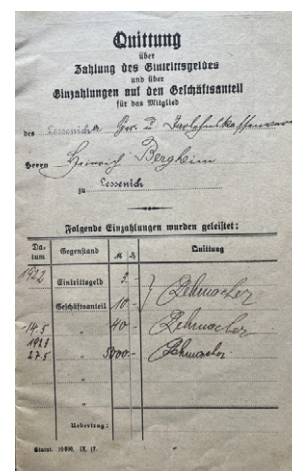 Quittung
über
Zahlung des Eintrittsgeldes
und über
Einzahlungen auf den Geschäftsanteil
für das Mitglied
des Lessenicher Spar- u. Darlehnskassenver
Herrn Heinrich Bergheim
zu Lessenich
Folgende Einzahlungen wurden geleistet:
Da-tum Gegenstand M ₰ Quittung
1922 Eintrittsgeld 3.-
Geschäftsanteil 10.-
14.5 " 40.-
1923
27.5 " 5000.-
"
"
Uebertrag:
Statut. 10000. IX. 17.